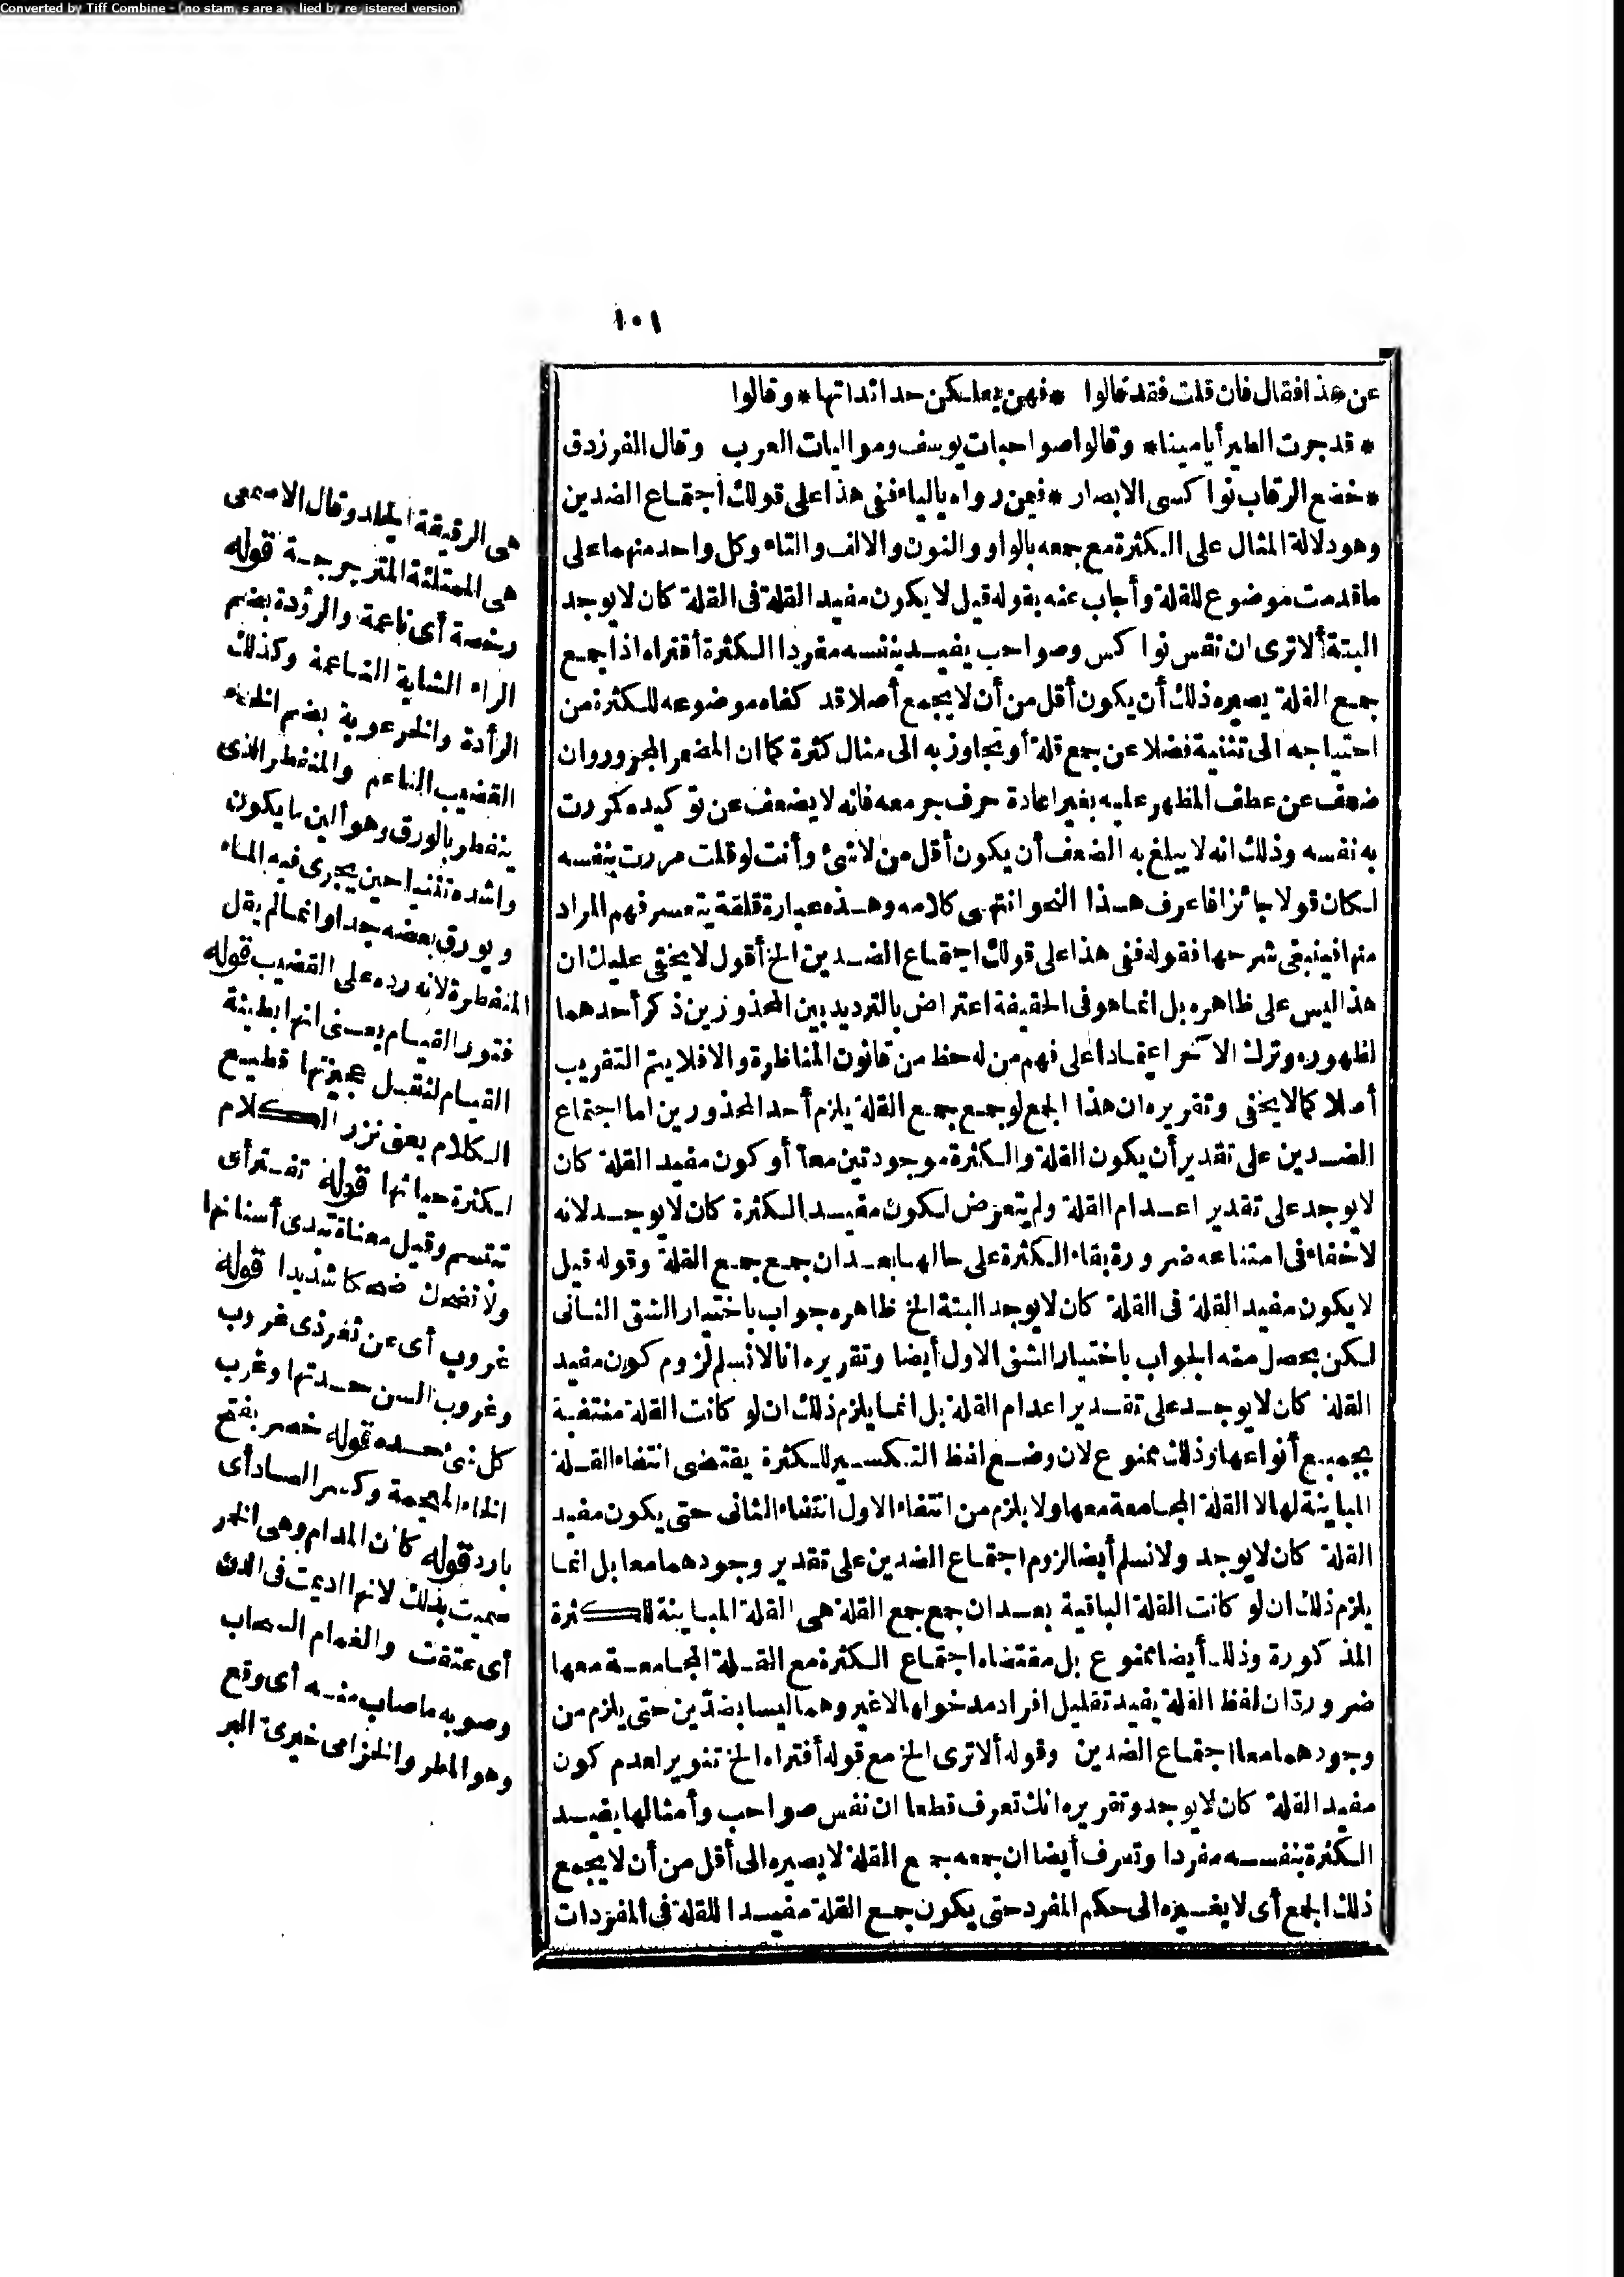 Converted by Tiff Combine - (no stamps are applied by registered version)
١٠١
عن هذا فقال فان قلت فقد قالوا * فهن يعلكن حدائداتها * وقالوا
* قد جرت الطير أيامينا * وقالوا صواحبات يوسف ومواليات العرب وقال الفرزدق
* خضع الرقاب نواكسى الابصار * فيمن رواه بالياء ففى هذا على قولك اجتماع الضدين
وهو دلالة المثال على الكثرة مع جمعه بالواو والنون والالف والتاء وكل واحد منهما على
ما قدمت موضوع للقلة وأجاب عنه بقوله قيل لا يكون مفيد القلة فى القلة كان لا يوجد
البتة ألا ترى ان نفس نواكس وصواحب يفيد بنفسه مفردا الكثرة أفتراه اذا جمع
جمع القلة يصيره ذلك أن يكون أقل من أن لا يجمع أصلا قد كفاه موضوعه للكثرة من
احتياجه الى تثنية فضلا عن جمع قلة أو تجاوز به الى مثال كثرة كما ان المضمر المجرور وان
ضعف عن عطف المظهر عليه بغير اعادة حرف جر معه فانه لا يضعف عن توكيده كمررت
به نفسه وذلك انه لا يبلغ به الضعف أن يكون أقل من لا شئ وأنت لو قلت مررت بنفسه
لكان قولا جائزا فاعرف هذا النحو انتهى كلامه وهذه عبارة قلقة يتعسر فهم المراد
منها فينبغى شرحها فقوله ففى هذا على قولك اجتماع الضدين الخ أقول لا يخفى عليك ان
هذا ليس على ظاهره بل انما هو فى الحقيقة اعتراض بالترديد بين المحذورين ذكر أحدهما
لظهوره وترك الآخر اعتمادا على فهم من له حظ من قانون المناظرة والا فلا يتم التقريب
أصلا كما لا يخفى وتقريره ان هذا الجمع لو جمع جمع القلة يلزم أحد المحذورين اما اجتماع
الضدين على تقدير أن يكون القلة والكثرة موجودتين معا أو كون مفيد القلة كان
لا يوجد على تقدير اعدام القلة ولم يتعرض لكون مفيد الكثرة كان لا يوجد لانه
لا خفاء فى امتناعه ضرورة بقاء الكثرة على حالها بعد ان جمع جمع القلة وقوله قيل
لا يكون مفيد القلة فى القلة كان لا يوجد البتة الخ ظاهره جواب باختيار الشق الثانى
لكن يحصل منه الجواب باختيار الشق الاول أيضا وتقريره انا لا نسلم لزوم كون مفيد
القلة كان لا يوجد على تقدير اعدام القلة بل انما يلزم ذلك ان لو كانت القلة منتفية
بجميع أنواعها وذلك ممنوع لان وضع لفظ التكسير للكثرة يقتضى انتفاء القلة
المباينة لها لا القلة المجامعة معها ولا يلزم من انتفاء الاول انتفاء الثانى حتى يكون مفيد
القلة كان لا يوجد ولا نسلم أيضا لزوم اجتماع الضدين على تقدير وجودهما معا بل انما
يلزم ذلك ان لو كانت القلة الباقية بعد ان جمع جمع القلة هى القلة المباينة للكثرة
المذكورة وذلك أيضا ممنوع بل مقتضاه اجتماع الكثرة مع القلة المجامعة معها
ضرورة ان لفظ القلة يفيد تقليل افراد مدخولها لا غير وهما ليسا بضدين حتى يلزم من
وجودهما معا اجتماع الضدين وقوله ألا ترى الخ مع قوله أفتراه الخ تنوير لعدم كون
مفيد القلة كان لا يوجد وتقريره انك تعرف قطعا ان نفس صواحب وأمثالها يفيد
الكثرة بنفسه مفردا وتعرف أيضا ان جمعه جمع القلة لا يصيره الى أقل من أن لا يجمع
ذلك الجمع أى لا يغيره الى حكم المفرد حتى يكون جمع القلة مفيدا للقلة فى المفردات
هى الرقيقة الجلد وقال الاصمعى
هى الممتلئة المترجرجة قوله
رخصة أى ناعمة والرؤدة بضم
الراء الشابة الناعمة وكذلك
الرأدة والخرعوبة بضم الخاء
القضيب الناعم والمنفطر الذى
ينفطر بالورق وهو ألين ما يكون
واشده تثنيا حين يجرى فيه الماء
ويورق بعضه جدا وانما لم يقل
المنفطرة لانه رده على القضيب قوله
فتور القيام يعنى انها بطيئة
القيام لثقل عجيزتها قطيع
الكلام يعنى نزر الكلام
لكثرة حيائها قوله تفتر أى
تبتسم وقيل معناه تبدى أسنانها
ولا تضحك ضحكا شديدا قوله
غروب أى عن ثغر ذى غروب
وغروب السن حدتها وغرب
كل شئ حده قوله خصر بفتح
الخاء المعجمة وكسر الصاد أى
بارد قوله كان المدام وهى الخمر
سميت بذلك لانها اديمت فى الدن
أى عتقت والغمام السحاب
وصوبه ما صاب منه أى وقع
وهو المطر والخزامى خيرى البر